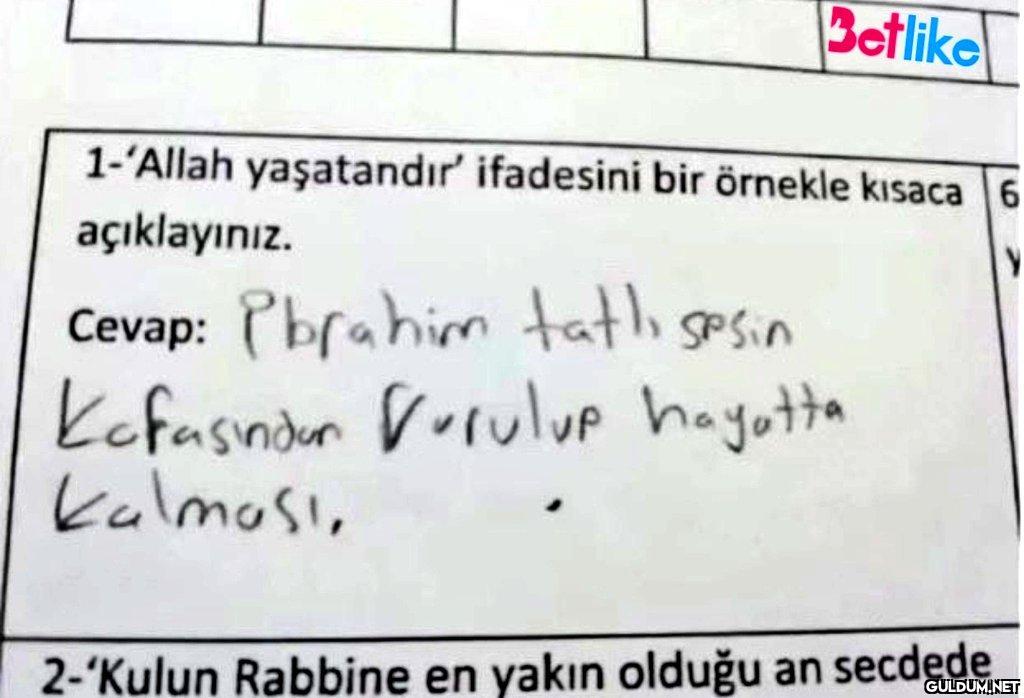 Betlike
1-‘Allah yaşatandır’ ifadesini bir örnekle kısaca
açıklayınız.
Cevap: İbrahim tatlı sesin
Kafasından Vurulup hayatta
Kalması.
6
y
2-‘Kulun Rabbine en yakın olduğu an secdede
GULDUM.NET